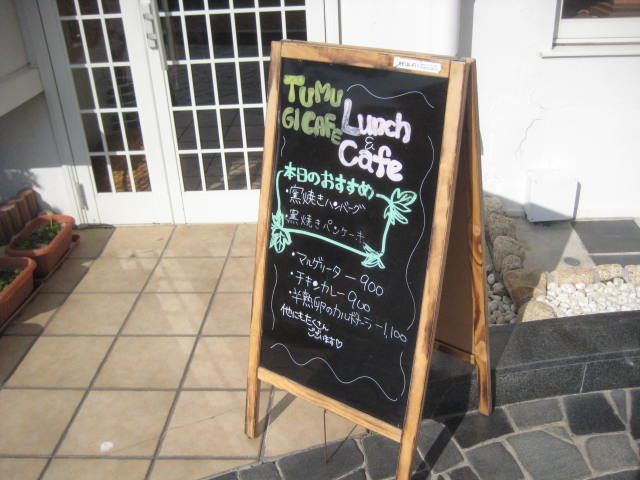 TUMU
GI CAFE
Lunch
&
Cafe
本日のおすすめ
・窯焼きハンバーグ
・窯焼きパンケーキ
・マルゲリーター 900
・チキンカレー 900
・半熟卵のカルボナーラー 1,100
他にもたくさん
ございます♡